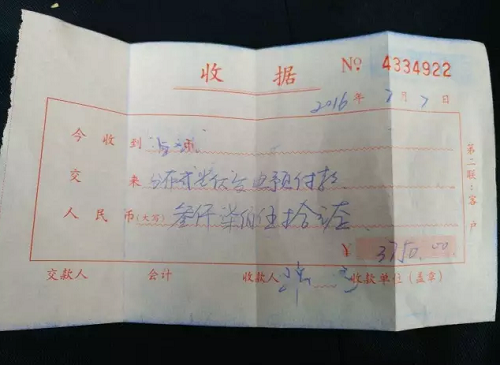 收据 № 4334922
2016年7月7日
今收到
交来 分布式光伏发电预付款
人民币(大写) 叁仟柒佰伍拾元整
¥ 3750.00
交款人 会计 收款人 收款单位(盖章)
第二联:客户